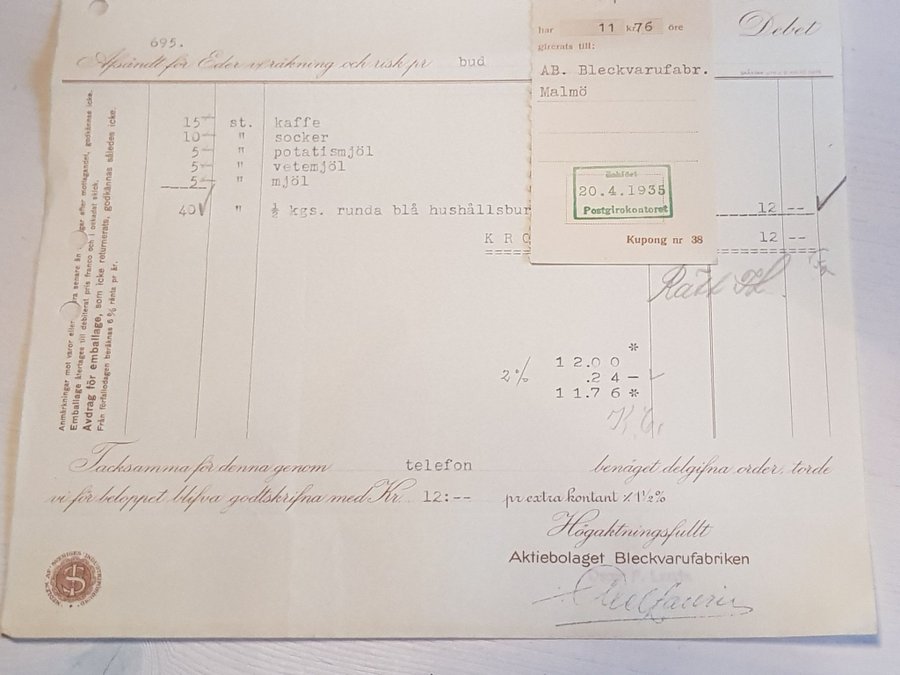 har 11 kr 76 öre
girerats till:
AB. Bleckvarufabr.
Malmö
Debet
695.
Afsändt för Eder uträkning och risk pr bud
15 st. kaffe
10 " socker
5 " potatismjöl
5 " vetemjöl
5 " mjöl
40 " ½ kgs. runda blå hushållsbur 12 --
KRO 12 --
20.4.1935
Postgirokontoret
Kupong nr 38
Rätt
*
12.00
2% .24 -
11.76 *
Anmärkningar mot varor eller
Emballage återtages till debiterat pris franco och i oskadat skick.
Avdrag för emballage, som icke returnerats, godkännas således icke.
Från förfallodagen beräknas 6 % ränta pr år.
Tacksamma för denna genom telefon benäget delgifna order, torde
vi för beloppet blifva godtskrifna med Kr. 12:-- pr extra kontant % 1½%
Högaktningsfullt
Aktiebolaget Bleckvarufabriken